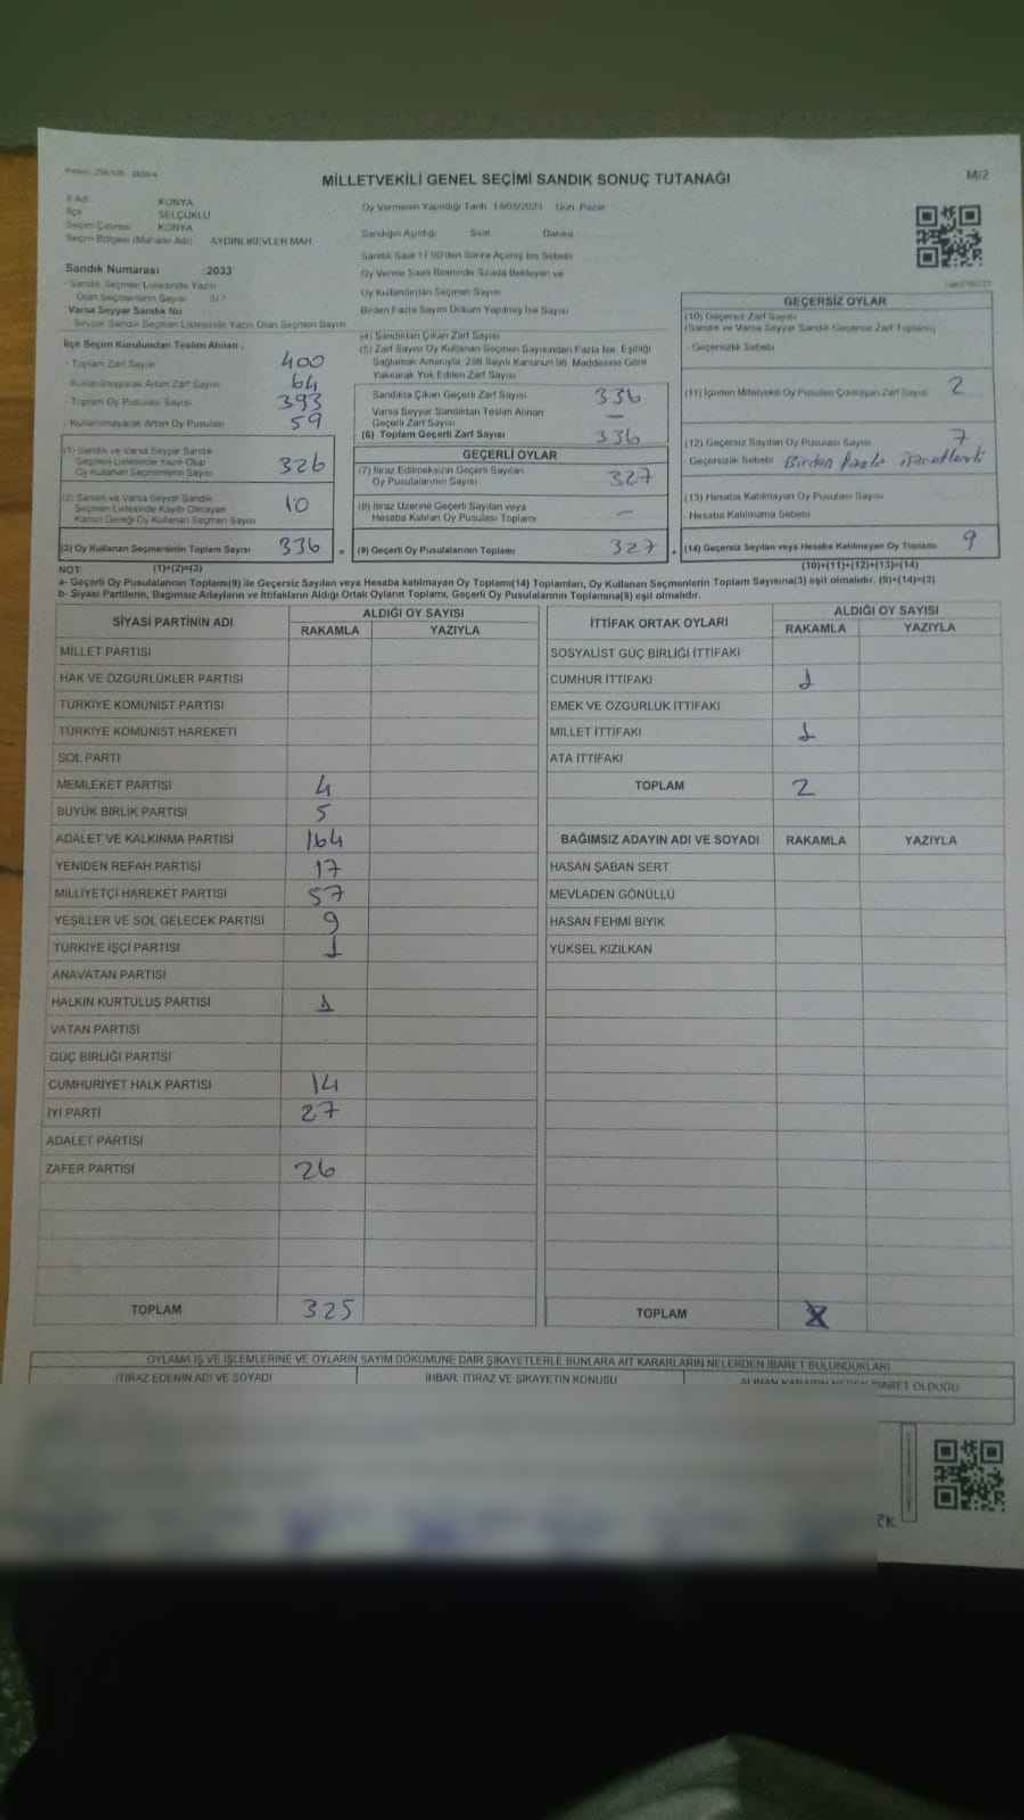 MİLLETVEKİLİ GENEL SEÇİMİ SANDIK SONUÇ TUTANAĞI
M/2
KONYA
İlçe SELÇUKLU
Seçim Çevresi KONYA
Seçim Bölgesi (Mahalle Adı) AYDINLIKEVLER MAH.
Oy Vermenin Yapıldığı Tarih: 14/05/2023 Gün: Pazar
Sandığın Açıldığı Saat Dakika
Sandık Numarası :2033
Sandık Seçmen Listesinde Yazılı
Olan Seçmenlerin Sayısı
Varsa Seyyar Sandık No
Seyyar Sandık Seçmen Listesinde Yazılı Olan Seçmen Sayısı
Oy Kullandırılan Seçmen Sayısı
Birden Fazla Sayım Döküm Yapılmış İse Sayısı
İlçe Seçim Kurulundan Teslim Alınan :
- Toplam Zarf Sayısı 400
- Kullanılmayarak Artan Zarf Sayısı 64
- Toplam Oy Pusulası Sayısı 393
- Kullanılmayarak Artan Oy Pusulası 59
(1) Sandık ve Varsa Seyyar Sandık
Seçmen Listesinde Yazılı Olup
Oy Kullanan Seçmenlerin Sayısı 326
(2) Sandık ve Varsa Seyyar Sandık
Seçmen Listesinde Kayıtlı Olmayan
Kanun Gereği Oy Kullanan Seçmen Sayısı 10
(3) Oy Kullanan Seçmenlerin Toplam Sayısı 336
(4) Sandıktan Çıkan Zarf Sayısı
(5) Zarf Sayısı Oy Kullanan Seçmen Sayısından Fazla İse, Eşitliği
Sağlamak Amacıyla, 298 Sayılı Kanunun 98. Maddesine Göre
Yakılarak Yok Edilen Zarf Sayısı
Sandıkta Çıkan Geçerli Zarf Sayısı 336
Varsa Seyyar Sandıktan Teslim Alınan
Geçerli Zarf Sayısı –
(6) Toplam Geçerli Zarf Sayısı 336
GEÇERLİ OYLAR
(7) İtiraz Edilmeksizin Geçerli Sayılan
Oy Pusulalarının Sayısı 327
(8) İtiraz Üzerine Geçerli Sayılan veya
Hesaba Katılan Oy Pusulası Toplamı –
(9) Geçerli Oy Pusulalarının Toplamı 327
GEÇERSİZ OYLAR
(10) Geçersiz Zarf Sayısı
(Sandık ve Varsa Seyyar Sandık Geçersiz Zarf Toplamı)
Geçersizlik Sebebi
(11) İçinden Milletvekili Oy Pusulası Çıkmayan Zarf Sayısı 2
(12) Geçersiz Sayılan Oy Pusulası Sayısı 7
- Geçersizlik Sebebi Birden fazla işaretlenti
(13) Hesaba Katılmayan Oy Pusulası Sayısı
- Hesaba Katılmama Sebebi
(14) Geçersiz Sayılan veya Hesaba Katılmayan Oy Toplamı 9
NOT: (1)+(2)=(3)
(10)+(11)+(12)+(13)=(14)
a- Geçerli Oy Pusulalarının Toplamı(9) ile Geçersiz Sayılan veya Hesaba katılmayan Oy Toplamı(14) Toplamları, Oy Kullanan Seçmenlerin Toplam Sayısına(3) eşit olmalıdır. (9)+(14)=(3)
b- Siyasi Partilerin, Bağımsız Adayların ve İttifakların Aldığı Ortak Oyların Toplamı, Geçerli Oy Pusulalarının Toplamına(9) eşit olmalıdır.
SİYASİ PARTİNİN ADI ALDIĞI OY SAYISI
RAKAMLA YAZIYLA
MİLLET PARTİSİ
HAK VE ÖZGÜRLÜKLER PARTİSİ
TÜRKİYE KOMÜNİST PARTİSİ
TÜRKİYE KOMÜNİST HAREKETİ
SOL PARTİ
MEMLEKET PARTİSİ 4
BÜYÜK BİRLİK PARTİSİ 5
ADALET VE KALKINMA PARTİSİ 164
YENİDEN REFAH PARTİSİ 17
MİLLİYETÇİ HAREKET PARTİSİ 57
YEŞİLLER VE SOL GELECEK PARTİSİ 9
TÜRKİYE İŞÇİ PARTİSİ 1
ANAVATAN PARTİSİ
HALKIN KURTULUŞ PARTİSİ 1
VATAN PARTİSİ
GÜÇ BİRLİĞİ PARTİSİ
CUMHURİYET HALK PARTİSİ 14
İYİ PARTİ 27
ADALET PARTİSİ
ZAFER PARTİSİ 26
TOPLAM 325
İTTİFAK ORTAK OYLARI ALDIĞI OY SAYISI
RAKAMLA YAZIYLA
SOSYALİST GÜÇ BİRLİĞİ İTTİFAKI
CUMHUR İTTİFAKI 1
EMEK VE ÖZGÜRLÜK İTTİFAKI
MİLLET İTTİFAKI 1
ATA İTTİFAKI
TOPLAM 2
BAĞIMSIZ ADAYIN ADI VE SOYADI RAKAMLA YAZIYLA
HASAN ŞABAN SERT
MEVLADEN GÖNÜLLÜ
HASAN FEHMİ BIYIK
YÜKSEL KIZILKAN
TOPLAM X
OYLAMA İŞ VE İŞLEMLERİNE VE OYLARIN SAYIM DÖKÜMÜNE DAİR ŞİKAYETLERLE BUNLARA AİT KARARLARIN NELERDEN İBARET BULUNDUKLARI
İTİRAZ EDENİN ADI VE SOYADI İHBAR, İTİRAZ VE ŞİKAYETİN KONUSU